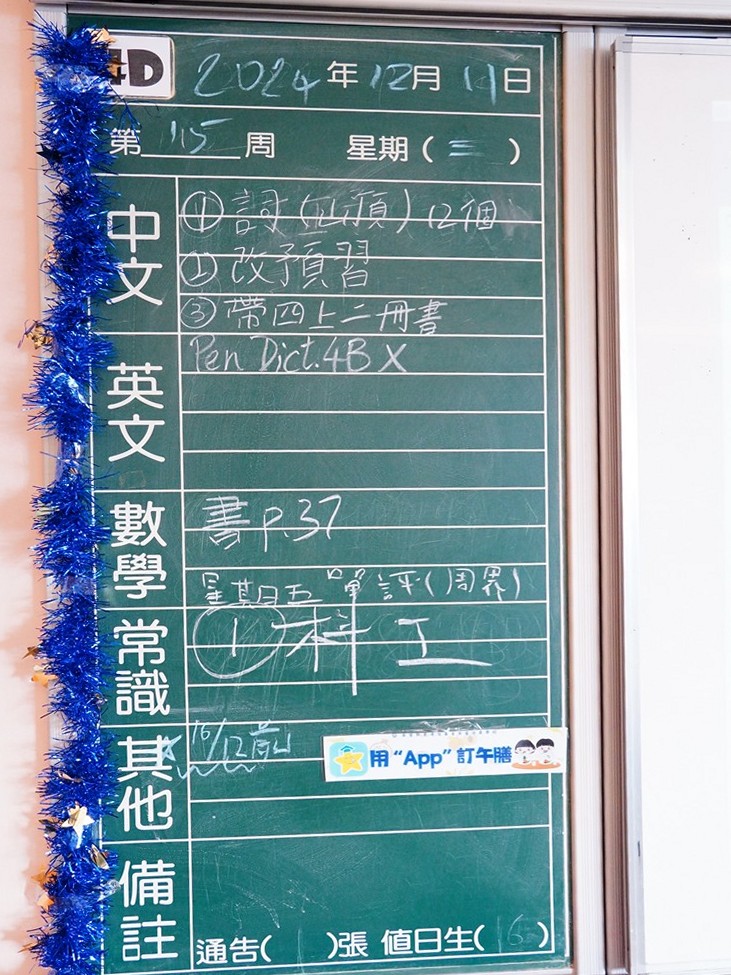 4D 2024年12月11日
第15周 星期(三)
中文
①詞(山頂)12個
②改預習
③帶四上二冊書
英文
Pen Dict.4B X
數學
書p.37
星期五 單評(周界)
常識
①科工
其他
16/12前
用“App”訂午膳
備註
通告( )張 值日生(16)